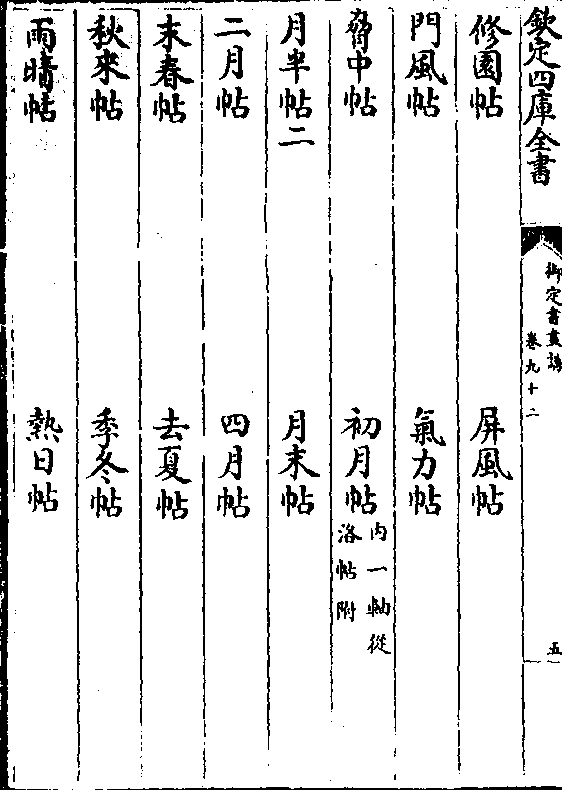 欽定四庫全書
御定書畫譜
卷九十二
五
修園帖　屏風帖
門風帖　氣力帖
脅中帖　初月帖內一軸從洛帖附
月半帖二　月末帖
二月帖　四月帖
末春帖　去夏帖
秋來帖　季冬帖
雨晴帖　熱日帖